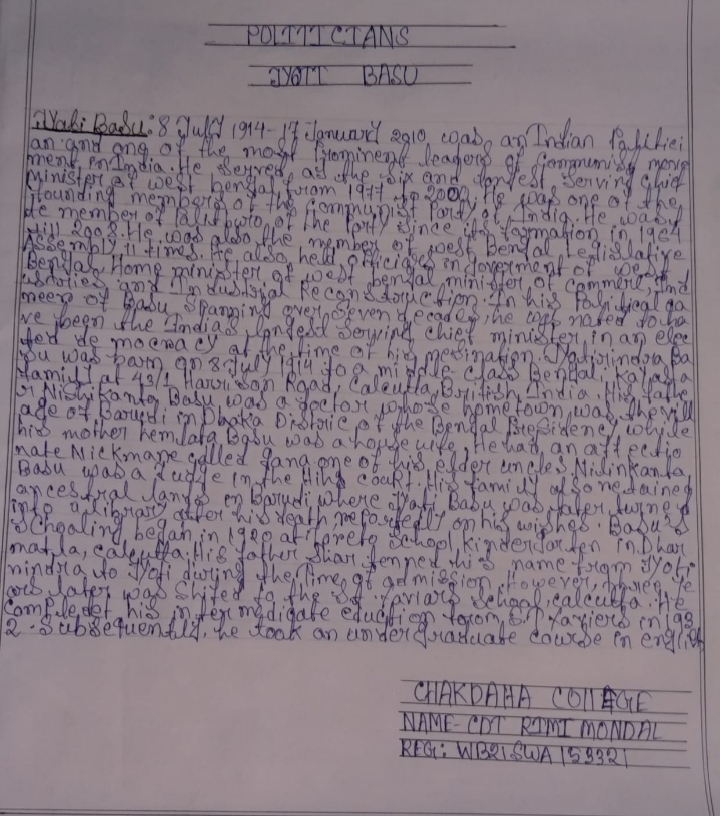 POLITICIANS
JYOTI BASU
Jyoti Basu: 8 July 1914-17 January 2010 was an Indian Politici
an and one of the most prominent leaders of Communist move
ment in India. He served as the six and longest serving Chief
minister of west bengal from 1977 to 2000. He was one of the
founding members of the Communist Party of India. He was
de member of Politburo, of the Party since its formation in 1964
till 2008. He was also the member of west Bengal legislative
Assembly 11 times. He also held officides in Goverment of west
Bengal, Home minister of west bengal minister of commerc, Ind
ustries and Industrial Reconstruction. In his Political ca
reer of Basu Spanning over seven decades, he was noted to ha
ve been the Indias longest serving chief minister in an elec
ted de mocracy at the time of his resination. Jyotirindra Ba
su was born on 8 July 1914 to a middle class Bengali Kayastha
family at 43/1 Harrison Road, Calcutta, British India. His fathe
r Nishikanta Basu was a doctor whose hometown was the vill
age of Barudi in Dhaka Distric of the Bengal Presidency while
his mother hemlata Basu was a house wife. He had an affectio
nate Nickname called Gana one of his elder uncles Nilinkanta
Basu was a Judge in the High court. His family also retained
ancestral lands in Barudi where Jyoti Basu was later turned
into a library after his death reportedly on his wishes. Basu's
Schooling began in 1920 at loreto School kindergarten in Dhar
matala, calcutta. His father shortenned his name from Jyoti
rindra to Jyoti during the time of admission. However, three ye
ars later was shited to the St. Xaviars School, calcutta. He
Completet his intermadigate eduction from St Xaviers in 193
2. Subsequently, he took an undergraduate course in english
CHAKDAHA COllEGE
NAME- CDT RIMI MONDAL
REG: WB21SWA153321